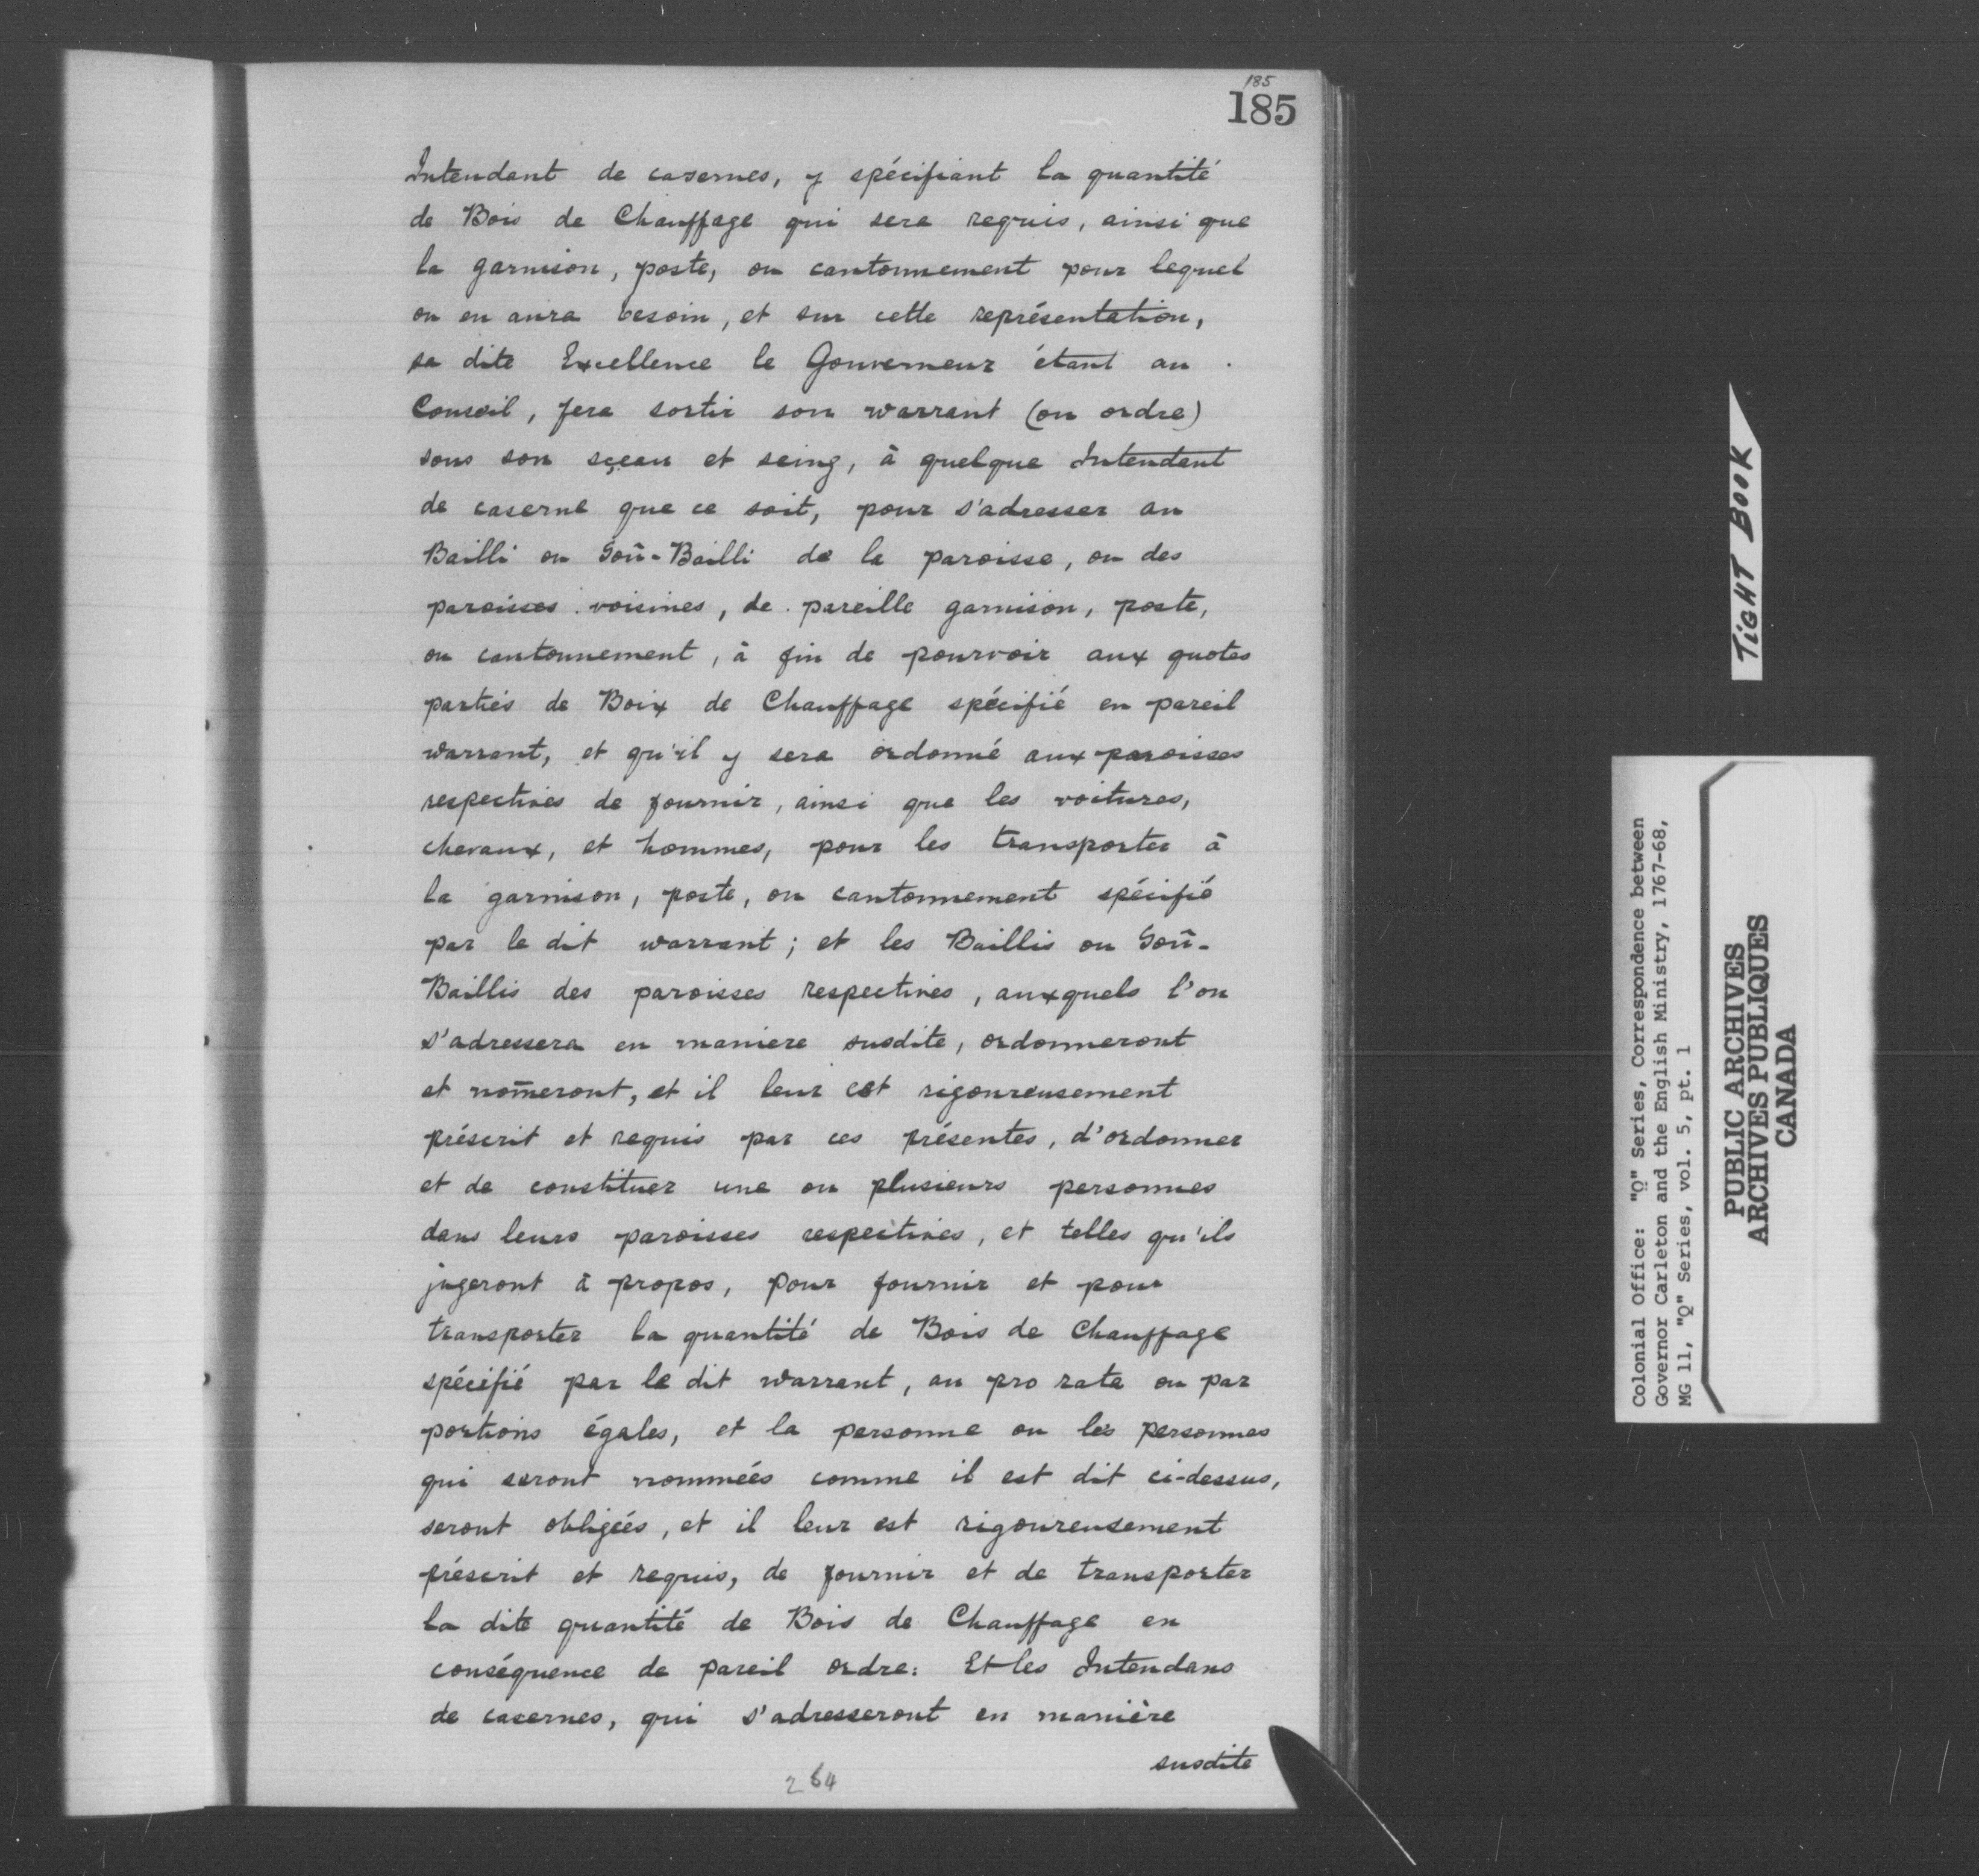 185
185
Intendant de casernes, y spécifiant la quantité
de Bois de Chauffage qui sera requis, ainsi que
la garnison, poste, ou cantonnement pour lequel
on en aura besoin, et sur cette représentation,
sa dite Excellence le Gouverneur étant au
Conseil, fera sortir son warrant (ou ordre)
sous son sçeau et seing, à quelque Intendant
de caserne que ce soit, pour s'adresser au
Bailli ou Soũ-Bailli de la paroisse, ou des
paroisses voisines, de pareille garnison, poste,
ou cantonnement, à fin de pourvoir aux quotes
parties de Boix de Chauffage spécifié en pareil
warrant, et qu'il y sera ordonné aux paroisses
respectives de fournir, ainsi que les voitures,
chevaux, et hommes, pour les transporter à
la garnison, poste, ou cantonnement spécifié
par le dit warrant; et les Baillis ou Soũ-
Baillis des paroisses respectives, auxquels l'on
s'adressera en maniere susdite, ordonneront
et nom̃eront, et il leur est rigoureusement
préscrit et requis par ces présentes, d'ordonner
et de constituer une ou plusieurs personnes
dans leurs paroisses respectives, et telles qu'ils
jugeront à propos, pour fournir et pour
transporter la quantité de Bois de Chauffage
spécifié par le dit warrant, au pro rata ou par
portions égales, et la personne ou les personnes
qui seront nommées comme il est dit ci-dessus,
seront obligées, et il leur est rigoureusement
préscrit et requis, de fournir et de transporter
la dite quantité de Bois de Chauffage en
conséquence de pareil ordre: Et les Intendans
de casernes, qui s'adresseront en manière
susdite
264
TIGHT BOOK
Colonial Office: "Q" Series, Correspondence between
Governor Carleton and the English Ministry, 1767-68,
MG 11, "Q" Series, vol. 5, pt. 1
PUBLIC ARCHIVES
ARCHIVES PUBLIQUES
CANADA